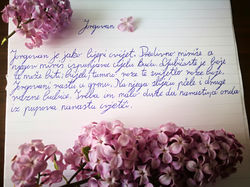 Jorgovan
Jorgovan je jako lijepi cvijet. Predivno miriše a
njegov miris ispunjava cijelu kuću. Ljubičaste je boje
te može biti: bijeli, tamno roze te svijetlo roze boje.
Jorgovani rastu u grmu. Na njega slijeću pčele i druge
razne bubice. Treba im malo duže da narastu, a onda
iz pupova narastu cvjetići.